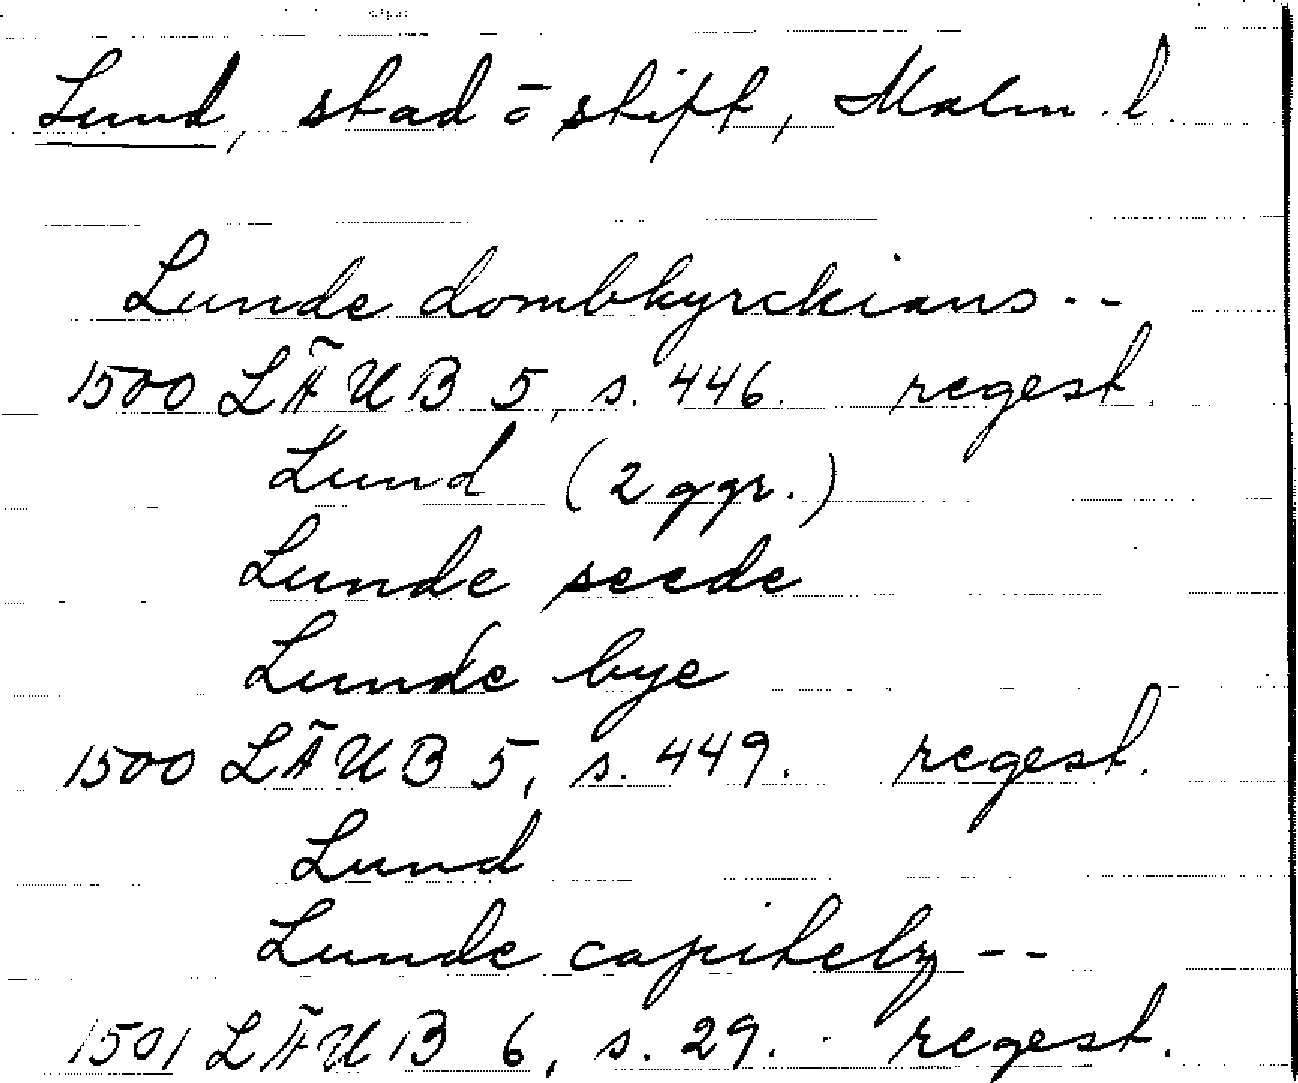 Lund, stad o stift, Malm. l.
Lunde dombkyrckians --
1500 LÄUB 5, s. 446. regest.
Lund (2 ggr.)
Lunde seede
Lunde bye
1500 LÄUB 5, s. 449. regest.
Lund
Lunde capitelz --
1501 LÄUB 6, s. 29. regest.